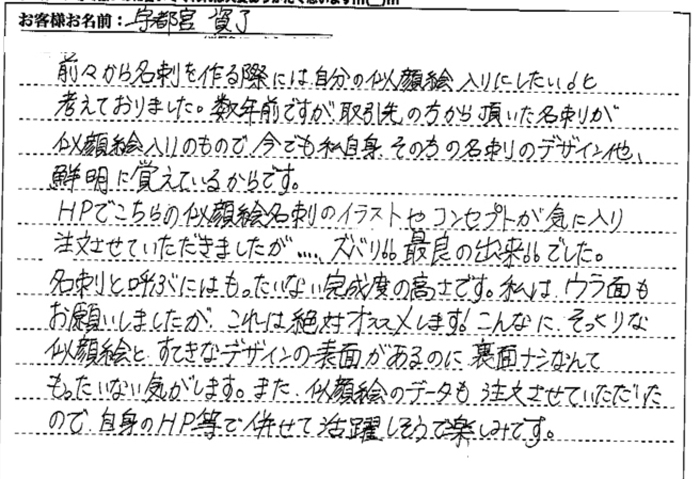 お客様お名前：宇都宮 資了
前々から名刺を作る際には自分の似顔絵入りにしたい!と
考えておりました。数年前ですが、取引先の方から頂いた名刺が
似顔絵入りのもので、今でも私自身、その方の名刺のデザイン他、
鮮明に覚えているからです。
HPでこちらの似顔絵名刺のイラストやコンセプトが気に入り
注文させていただきましたが.... ズバリ!! 最良の出来!!でした。
名刺と呼ぶにはもったいない完成度の高さです。私は、ウラ面も
お願いしましたが、これは絶対オススメします! こんなに、そっくりな
似顔絵と、すてきなデザインの表面があるのに裏面ナシなんて
もったいない気がします。また、似顔絵のデータも注文させていただいた
ので、自身のHP等で併せて活躍しそうで楽しみです。